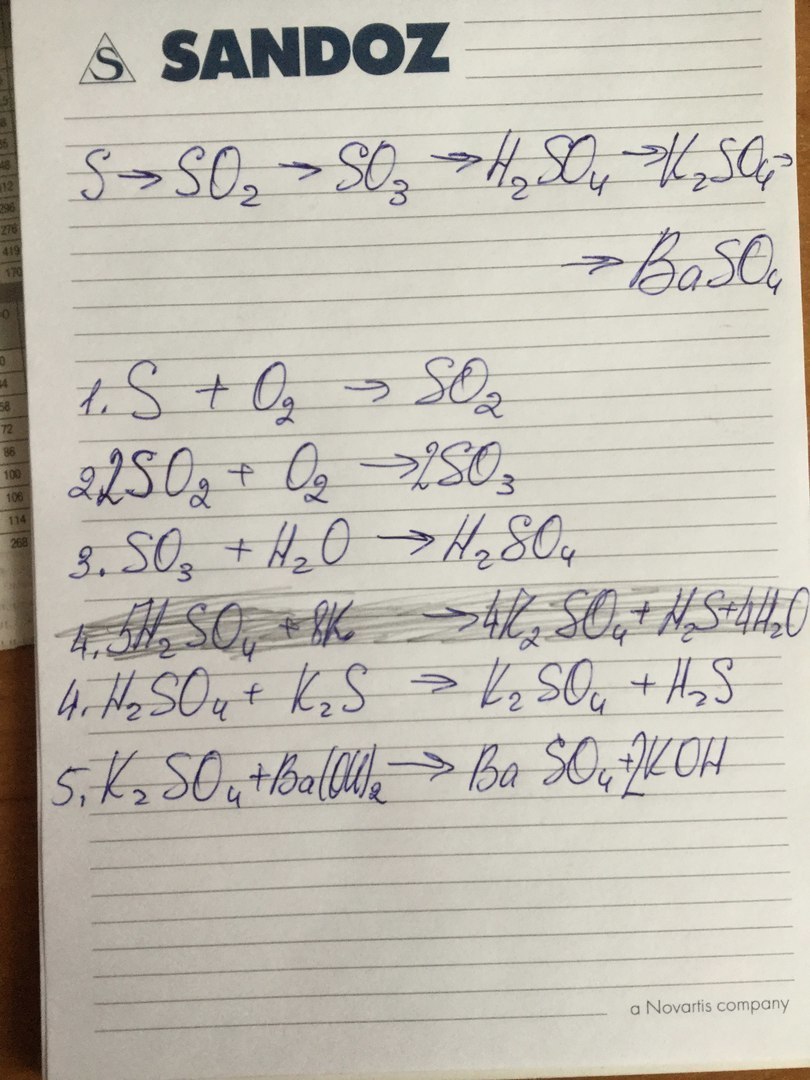 S SANDOZ
S → SO₂ → SO₃ → H₂SO₄ → K₂SO₄ →
→ BaSO₄
1. S + O₂ → SO₂
2. 2SO₂ + O₂ → 2SO₃
3. SO₃ + H₂O → H₂SO₄
4. 5H₂SO₄ + 8K → 4K₂SO₄ + H₂S + 4H₂O
4. H₂SO₄ + K₂S → K₂SO₄ + H₂S
5. K₂SO₄ + Ba(OH)₂ → BaSO₄ + 2KOH
a Novartis company